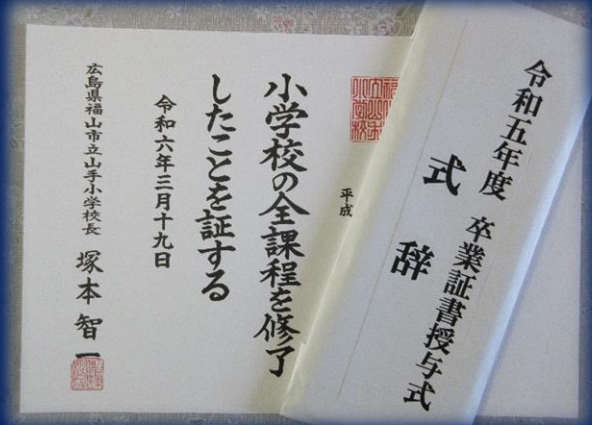 令和五年度 卒業証書授与式
式辞
平成
小学校の全課程を修了
したことを証する
令和六年三月十九日
広島県福山市立山手小学校長 塚本智一